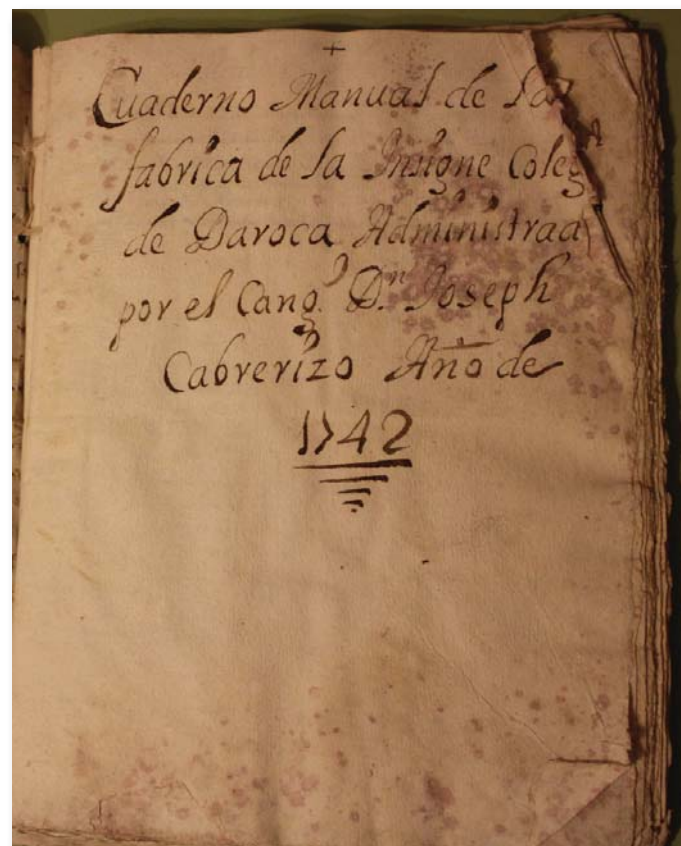 +
Cuaderno Manual de la
fabrica de la Insigne Coleg
de Daroca Administrad
por el Cang.º D.n Joseph
Cabrerizo Año de
1742